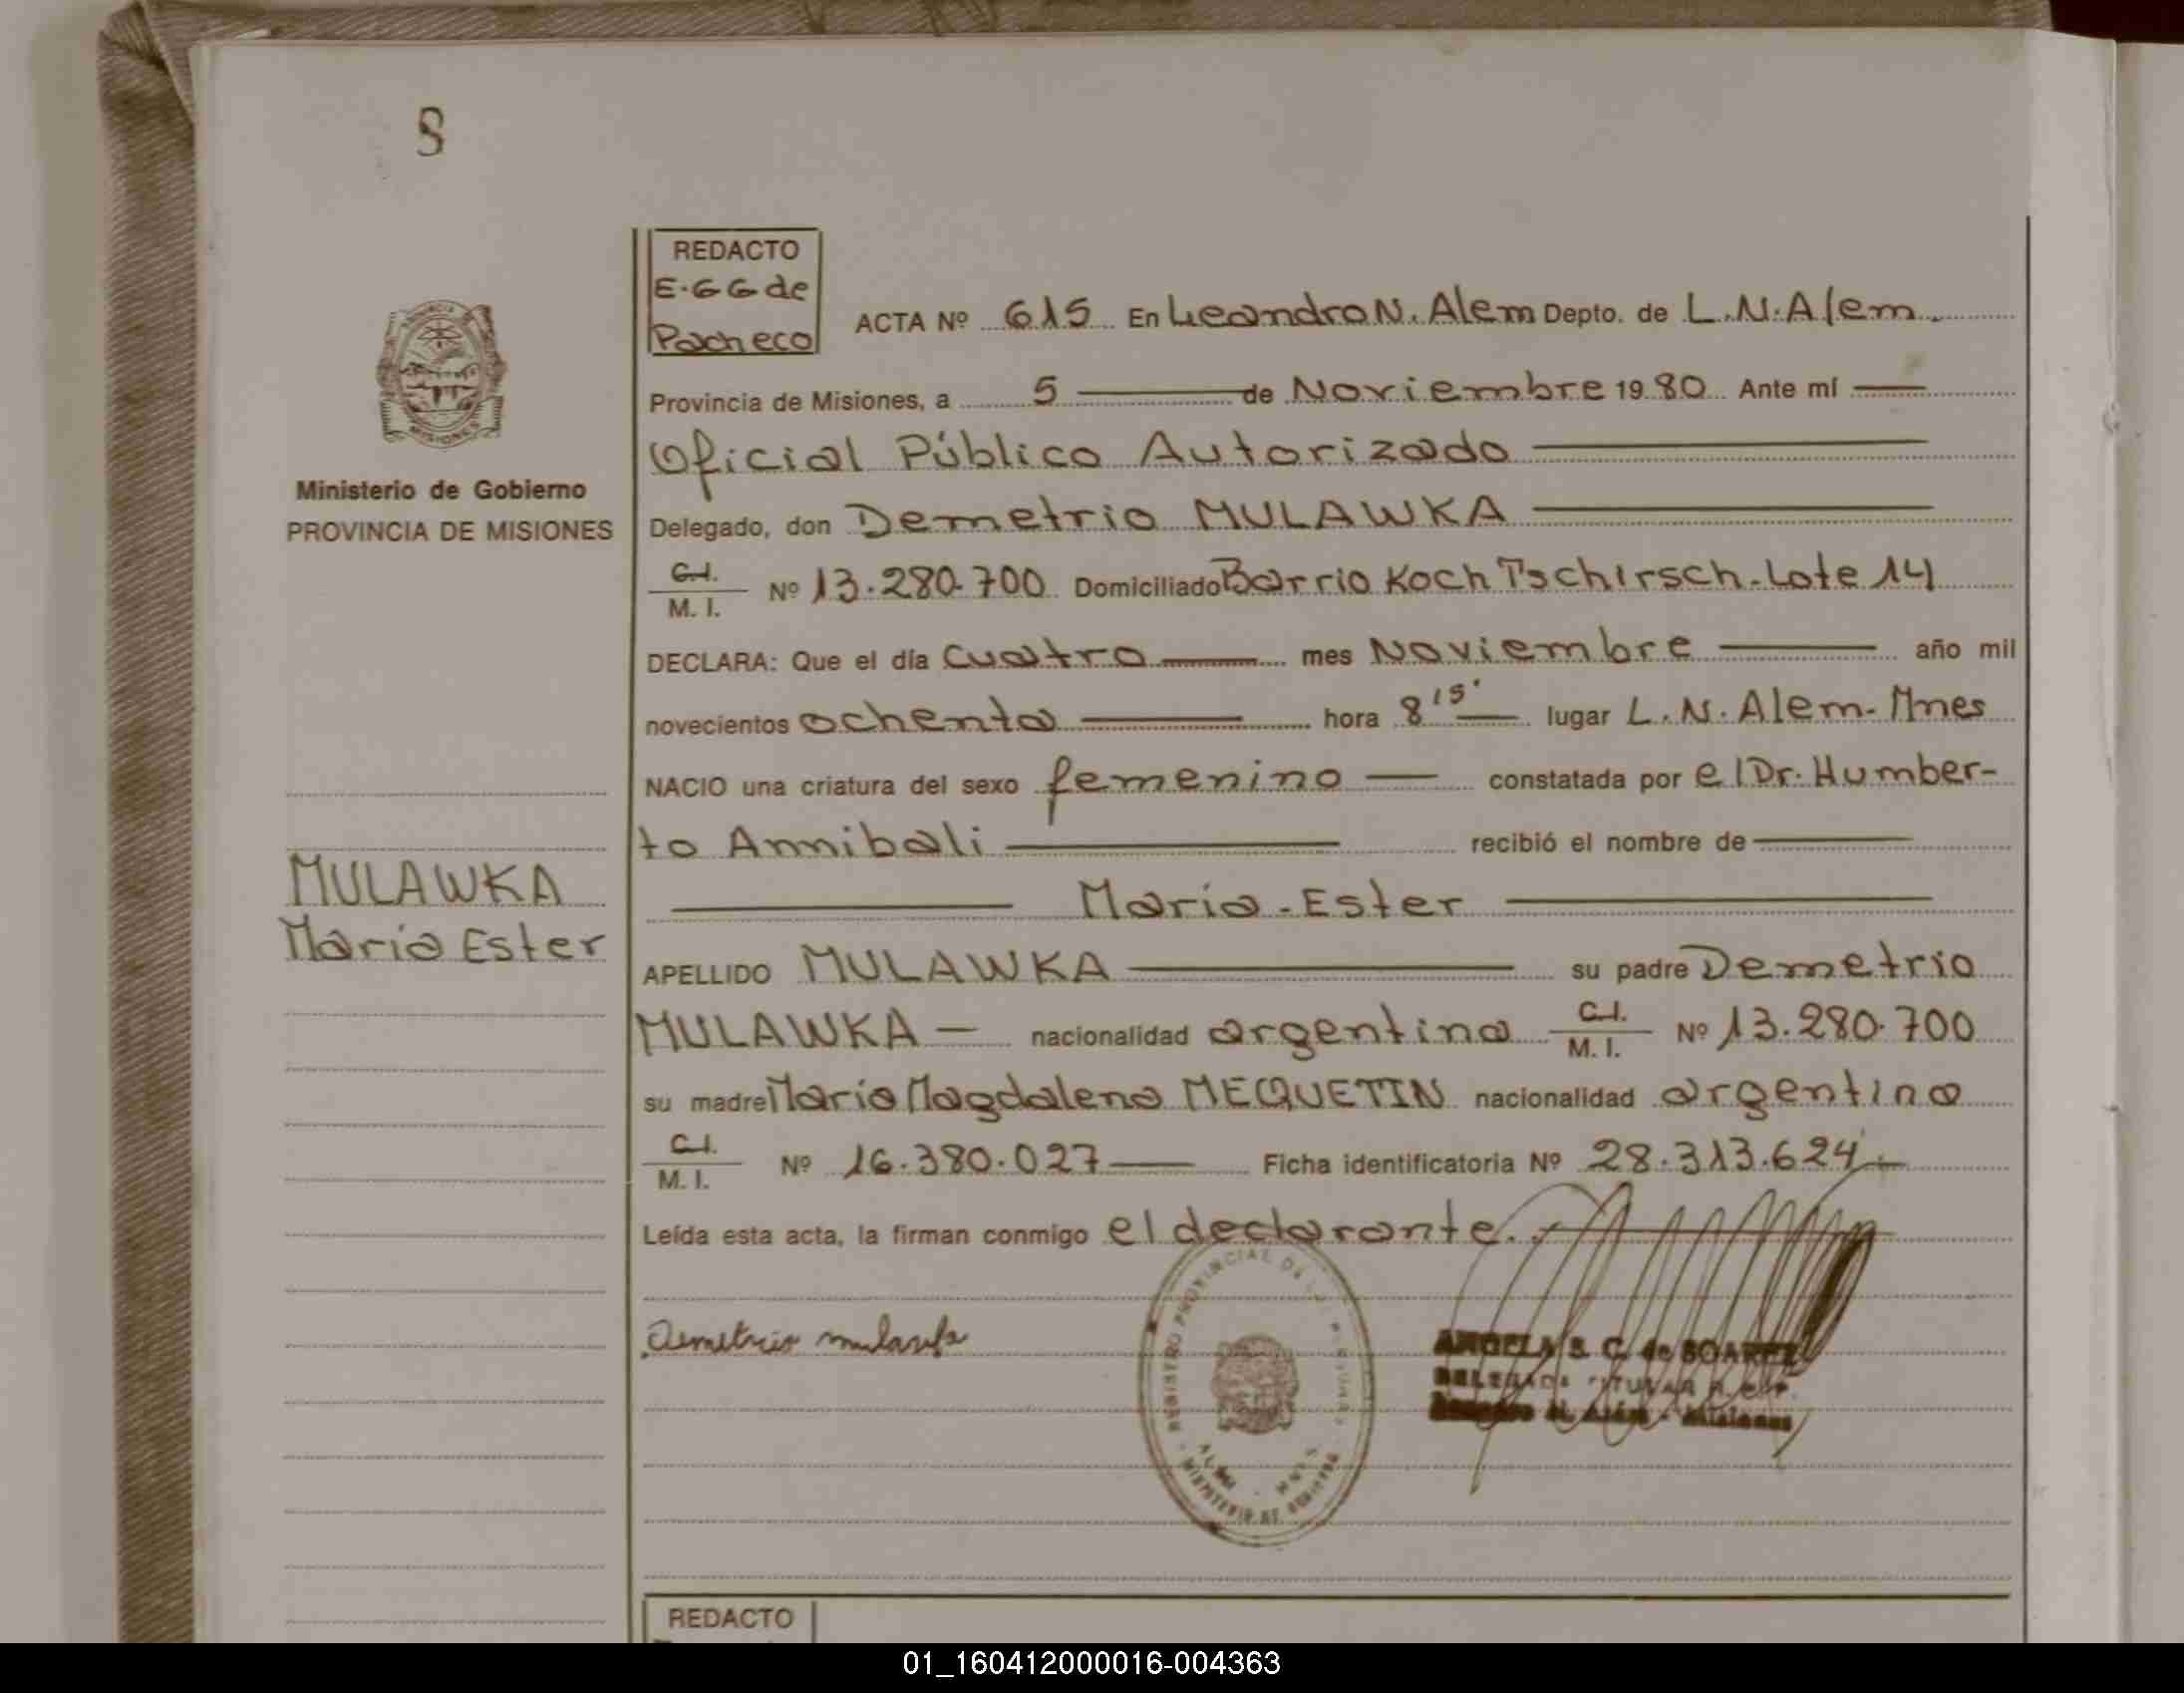 8
REDACTO
E.GG de
Pacheco
ACTA Nº 615 En Leandro N. Alem Depto. de L.N.Alem.
Provincia de Misiones, a 5 de Noviembre 1980 Ante mí
Oficial Público Autorizado
Delegado, don Demetrio MULAWKA
C.I.
M. I. Nº 13.280.700 Domiciliado Barrio Koch Tschirsch-Lote 14
DECLARA: Que el día cuatro mes Noviembre año mil
novecientos ochenta hora 8 15' lugar L.N.Alem-Mnes
NACIO una criatura del sexo femenino constatada por el Dr. Humber-
to Annibali recibió el nombre de
María-Ester
APELLIDO MULAWKA su padre Demetrio
MULAWKA nacionalidad argentina C.I.
M. I. Nº 13.280.700
su madre María Magdalena MEQUETIN nacionalidad argentina
C.I.
M. I. Nº 16.380.027 Ficha identificatoria Nº 28.313.624
Leída esta acta, la firman conmigo el declarante.
Demetrio mulawka
REGISTRO PROVINCIAL DE LAS
ALEM - MNES
MINISTERIO DE GOBIERNO
ANGELA S. C. de SOAREZ
DELEGADA TITULAR
Leandro N. Alem - Misiones
MISIONES
Ministerio de Gobierno
PROVINCIA DE MISIONES
MULAWKA
María Ester
REDACTO
01_160412000016-004363